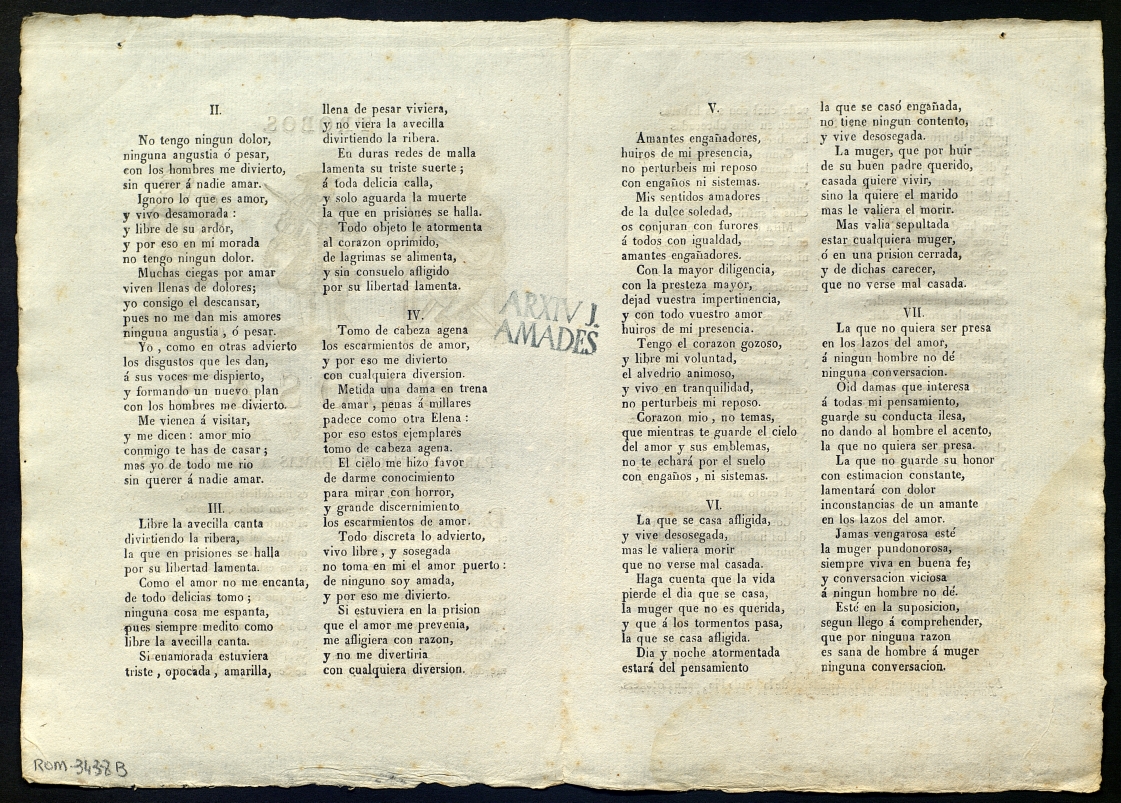 II.
No tengo ningun dolor,
ninguna angustia ó pesar,
con los hombres me divierto,
sin querer á nadie amar.
Ignoro lo que es amor,
y vivo desamorada :
y libre de su ardor,
y por eso en mi morada
no tengo ningun dolor.
Muchas ciegas por amar
viven llenas de dolores;
yo consigo el descansar,
pues no me dan mis amores
ninguna angustia , ó pesar.
Yo , como en otras advierto
los disgustos que les dan,
á sus voces me dispierto,
y formando un nuevo plan
con los hombres me divierto.
Me vienen á visitar,
y me dicen : amor mio
conmigo te has de casar ;
mas yo de todo me rio
sin querer á nadie amar.
III.
Libre la avecilla canta
divirtiendo la ribera,
la que en prisiones se halla
por su libertad lamenta.
Como el amor no me encanta,
de todo delicias tomo ;
ninguna cosa me espanta,
pues siempre medito como
libre la avecilla canta.
Si enamorada estuviera
triste , opocada , amarilla,
llena de pesar viviera,
y no viera la avecilla
divirtiendo la ribera.
En duras redes de malla
lamenta su triste suerte ;
á toda delicia calla,
y solo aguarda la muerte
la que en prisiones se halla.
Todo objeto le atormenta
al corazon oprimido,
de lagrimas se alimenta,
y sin consuelo afligido
por su libertad lamenta.
IV.
Tomo de cabeza agena
los escarmientos de amor,
y por eso me divierto
con cualquiera diversion.
Metida una dama en trena
de amar , penas á millares
padece como otra Elena :
por eso estos ejemplares
tomo de cabeza agena.
El cielo me hizo favor
de darme conocimiento
para mirar con horror,
y grande discernimiento
los escarmientos de amor.
Todo discreta lo advierto,
vivo libre , y sosegada
no toma en mi el amor puerto :
de ninguno soy amada,
y por eso me divierto.
Si estuviera en la prision
que el amor me prevenia,
me afligiera con razon,
y no me divertiria
con cualquiera diversion.
ARXIV J.
AMADES
V.
Amantes engañadores,
huiros de mi presencia,
no perturbeis mi reposo
con engaños ni sistemas.
Mis sentidos amadores
de la dulce soledad,
os conjuran con furores
á todos con igualdad,
amantes engañadores.
Con la mayor diligencia,
con la presteza mayor,
dejad vuestra impertinencia,
y con todo vuestro amor
huiros de mi presencia.
Tengo el corazon gozoso,
y libre mi voluntad,
el alvedrio animoso,
y vivo en tranquilidad,
no perturbeis mi reposo.
Corazon mio , no temas,
que mientras te guarde el cielo
del amor y sus emblemas,
no te echará por el suelo
con engaños , ni sistemas.
VI.
La que se casa afligida,
y vive desosegada,
mas le valiera morir
que no verse mal casada.
Haga cuenta que la vida
pierde el dia que se casa,
la muger que no es querida,
y que á los tormentos pasa,
la que se casa afligida.
Dia y noche atormentada
estará del pensamiento
la que se casó engañada,
no tiene ningun contento,
y vive desosegada.
La muger, que por huir
de su buen padre querido,
casada quiere vivir,
sino la quiere el marido
mas le valiera el morir.
Mas valia sepultada
estar cualquiera muger,
ó en una prision cerrada,
y de dichas carecer,
que no verse mal casada.
VII.
La que no quiera ser presa
en los lazos del amor,
á ningun hombre no dé
ninguna conversacion.
Oid damas que interesa
á todas mi pensamiento,
guarde su conducta ilesa,
no dando al hombre el acento,
la que no quiera ser presa.
La que no guarde su honor
con estimacion constante,
lamentará con dolor
inconstancias de un amante
en los lazos del amor.
Jamas vengarosa esté
la muger pundonorosa,
siempre viva en buena fe;
y conversacion viciosa
á ningun hombre no dé.
Esté en la suposicion,
segun llego á comprehender,
que por ninguna razon
es sana de hombre á muger
ninguna conversacion.
ROM-3438B